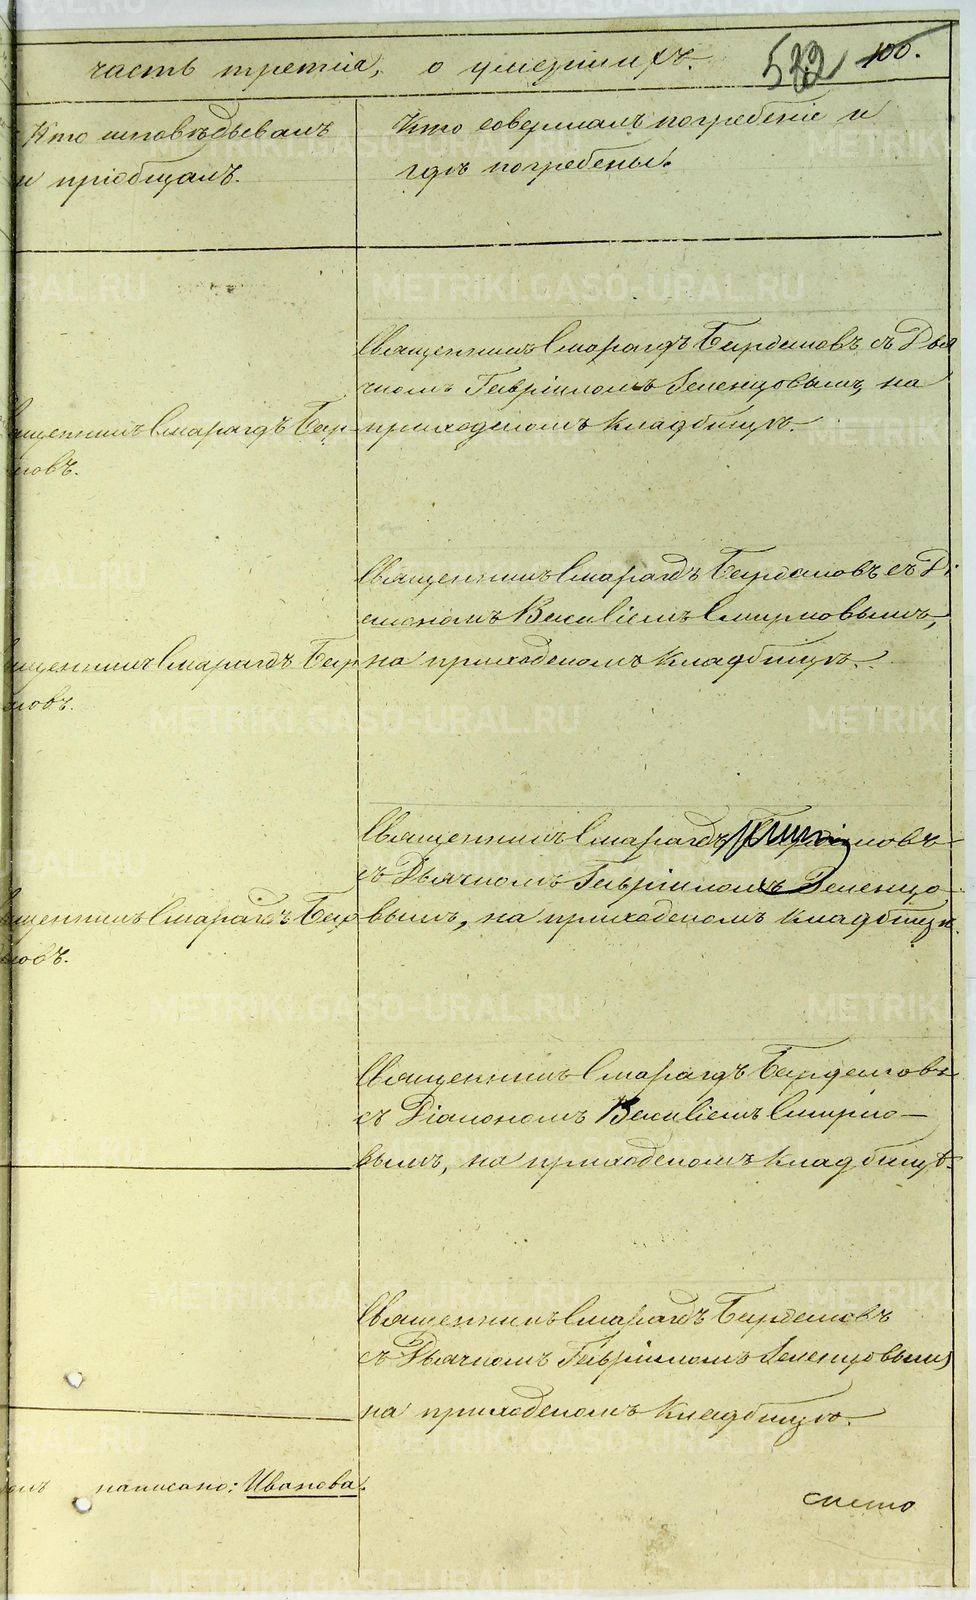 часть третія, о умершихъ. 522 100.
Кто исповѣдывалъ
и пріобщалъ.
Кто совершалъ погребеніе и
гдѣ погребены.
Священникъ Смарагдъ
Священникъ Смарагдъ Бирюковъ съ Дья
чкомъ Гавріиломъ Зеленцовымъ, на
приходскомъ кладбищѣ.
ященникъ Смарагдъ
ковъ.
Священникъ Смарагдъ съ Ді
акономъ Василіемъ Смирновымъ,
на приходскомъ кладбищѣ.
ященникъ Смарагдъ
ковъ.
Священникъ Смарагдъ
съ Дьячкомъ Гавріиломъ Зеленцо-
вымъ, на приходскомъ кладбищѣ.
ященникъ Смарагдъ
ковъ.
Священникъ Смарагдъ
съ Діакономъ Василіемъ Смирно-
вымъ, на приходскомъ кладбищѣ.
Священникъ Смарагдъ
съ Дьячкомъ Гавріиломъ Зеленцовымъ,
на приходскомъ кладбищѣ.
написано: Иванова.
METRIKI.GASO-URAL.RU